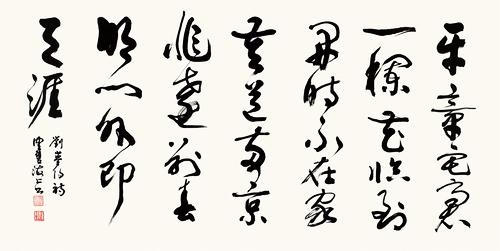 平章宅裏
一欄花臨到
開時不在家
莫道兩京
非遠別春
明門外即
天涯
劉夢得詩